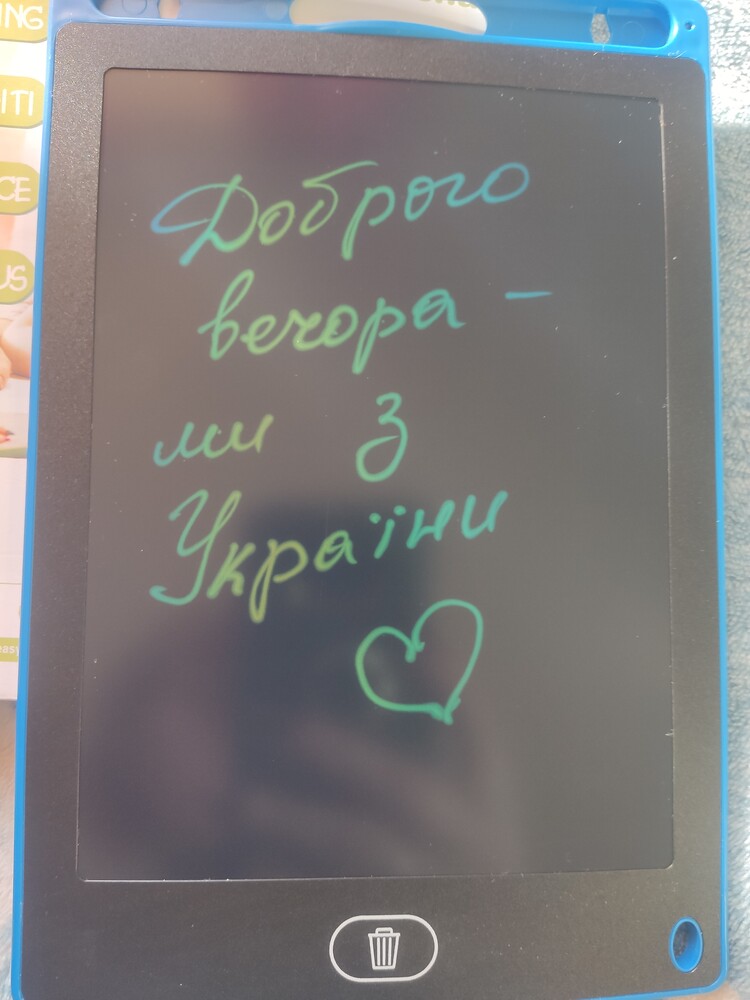 ING
ITI
CE
US
easy
Доброго
вечора -
ми з
України